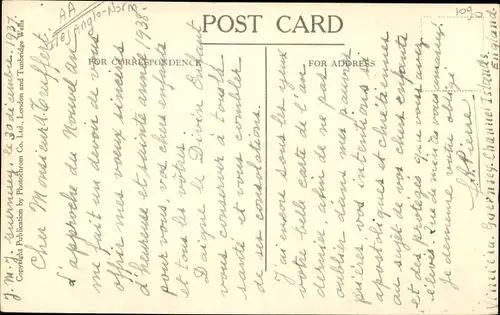 POST CARD
FOR CORRESPONDENCE
FOR ADDRESS
Copyright Publication by Photochrom Co. Ltd., London and Tunbridge Wells
AA
Iles Anglo-Norm
J. M. J. Guernesey, le 30 décembre, 1937.
Cher Monsieur
L'approche du Nouvel an
me fait un devoir de vous
offrir mes vœux sincères
d'heureuse et sainte année 1938.
pour vous, vos chers enfants
et tous les vôtres.
Daigne le Divin Enfant
vous conserver à tous la
santé et vous combler
de ses consolations.
J'ai encore sous les yeux
votre belle carte de l'an
dernier, afin de ne pas
oublier dans mes pauvres
prières vos intentions si
apostoliques et chrétiennes
au sujet de vos chers enfants
et des protégés que vous avez
élevés. Que de mérites vous aurez.
Je demeure votre obligé
Pierre
Vimiera, Guernsey, Channel Islands,
England.